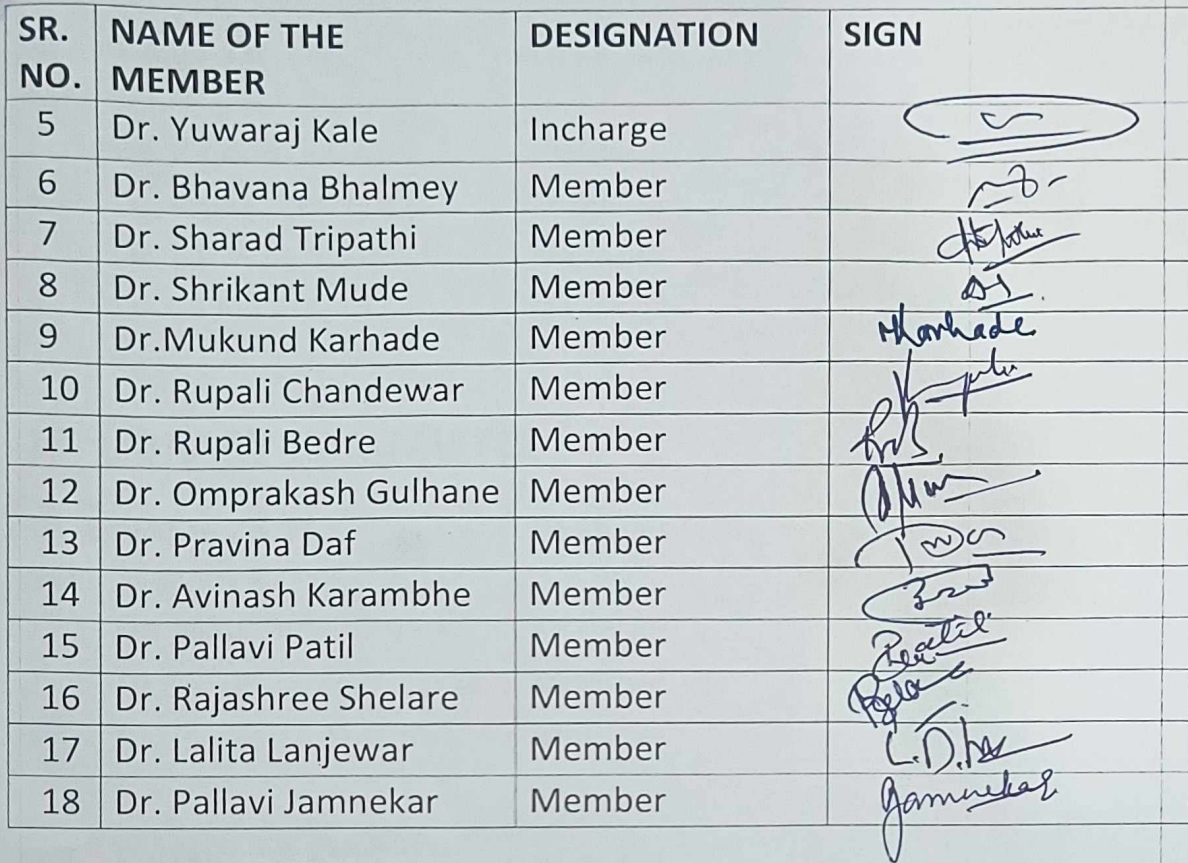 SR. NO. NAME OF THE MEMBER DESIGNATION SIGN
5 Dr. Yuwaraj Kale Incharge
6 Dr. Bhavana Bhalmey Member
7 Dr. Sharad Tripathi Member
8 Dr. Shrikant Mude Member
9 Dr.Mukund Karhade Member MKarhade
10 Dr. Rupali Chandewar Member
11 Dr. Rupali Bedre Member
12 Dr. Omprakash Gulhane Member
13 Dr. Pravina Daf Member
14 Dr. Avinash Karambhe Member
15 Dr. Pallavi Patil Member
16 Dr. Rajashree Shelare Member
17 Dr. Lalita Lanjewar Member
18 Dr. Pallavi Jamnekar Member Jamnekar